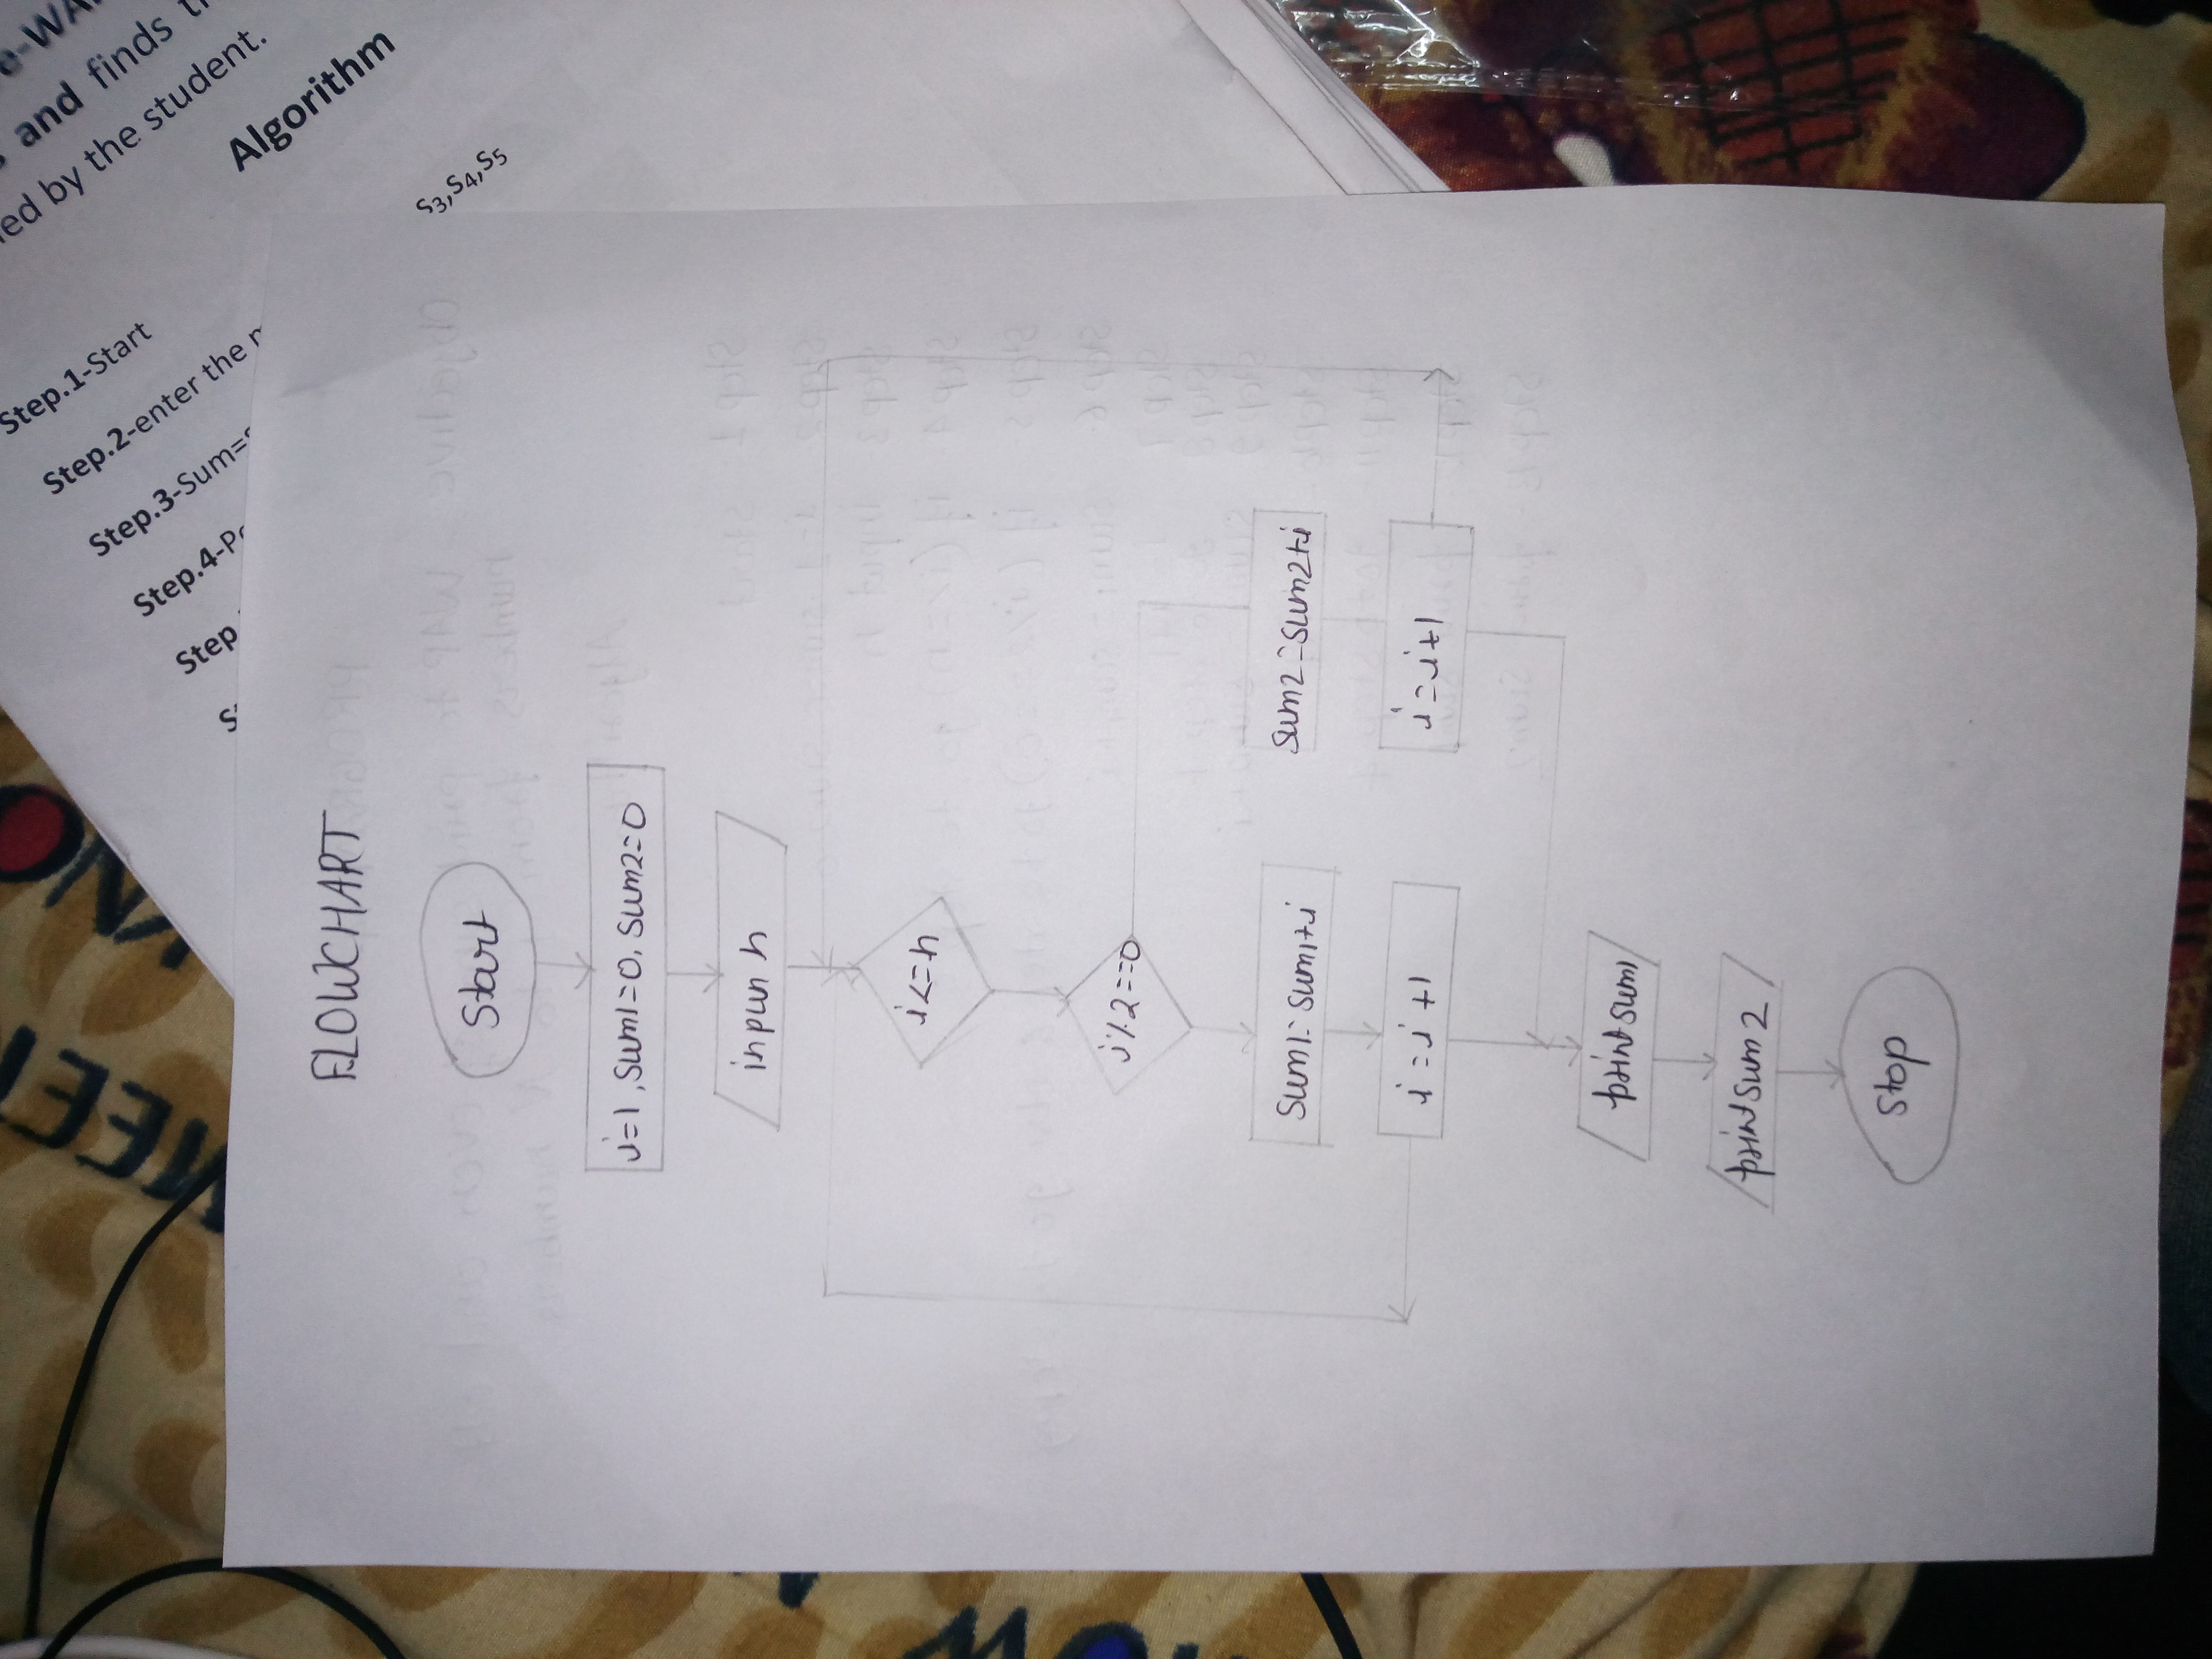 and finds
ed by the student.
Algorithm
S3,S4,S5
Step.1-Start
Step.2-enter the
Step.3-Sum=
Step.4-
Step
FLOWCHART
Start
i=1, Sum1=0, Sum2=0
inpun n
i<=n
i%2==0
Sum1=Sum1+i
Sum2=Sum2+i
i=i+1
i=i+1
print sum1
print sum2
stop